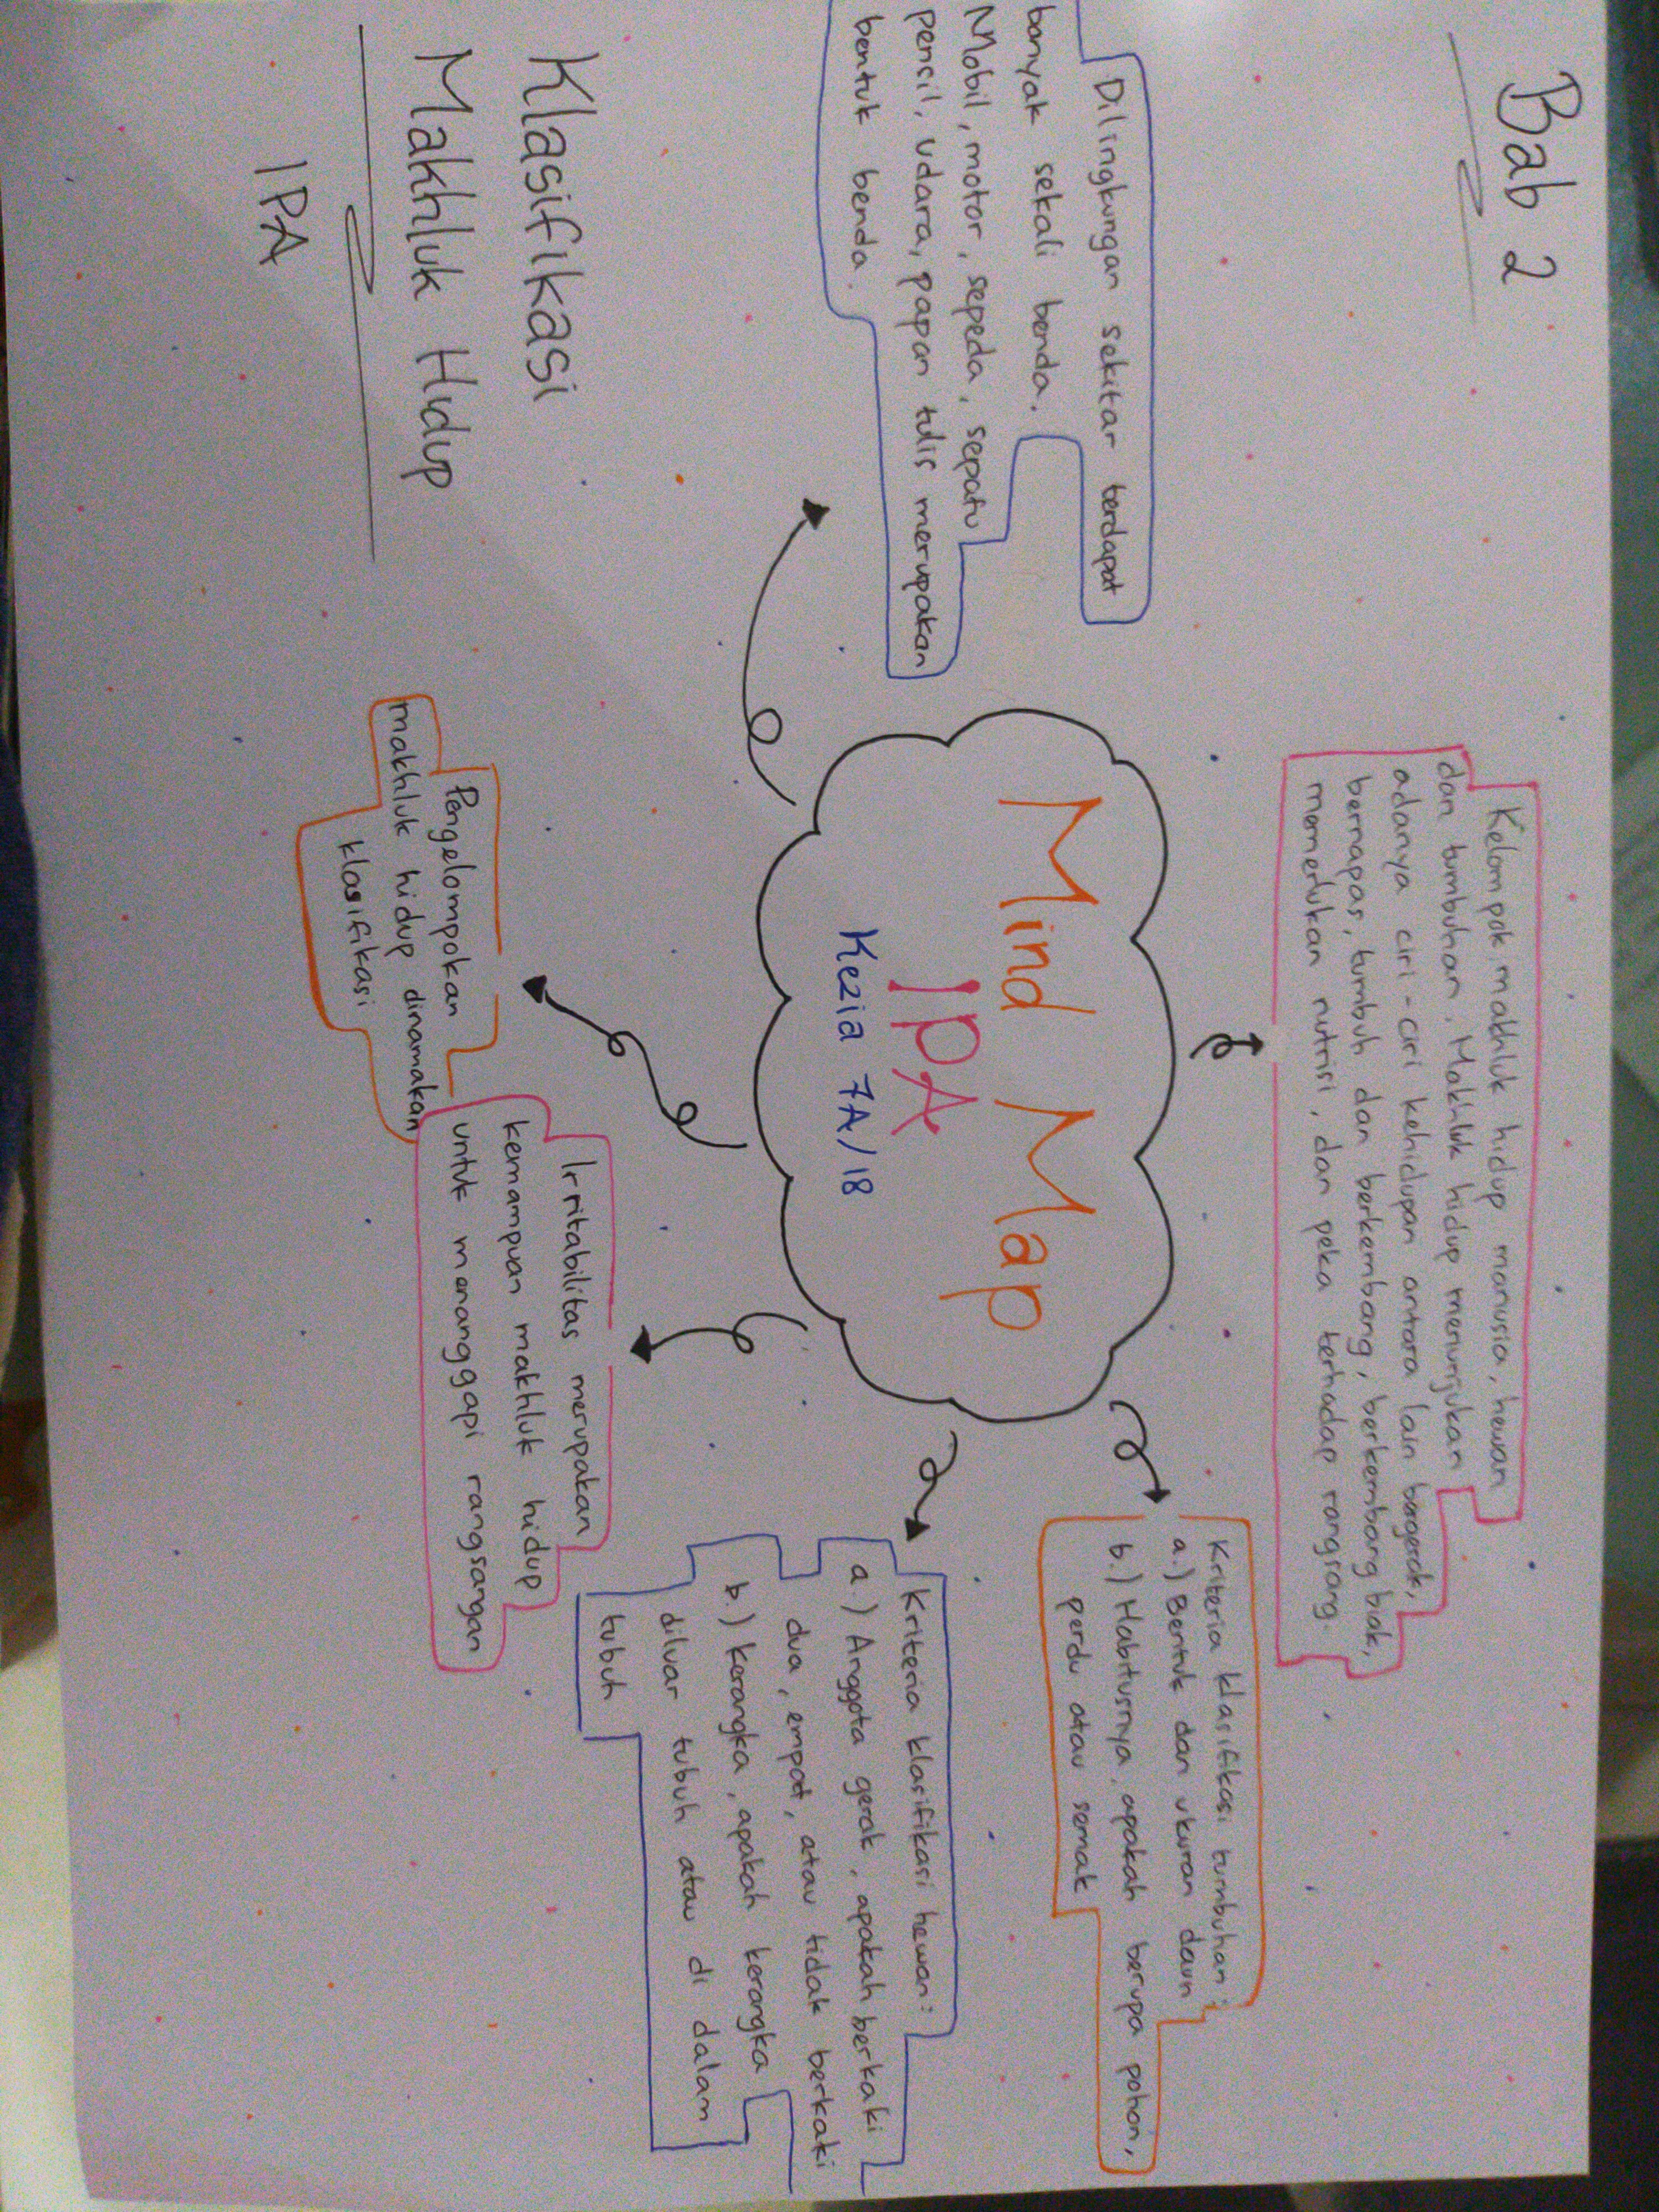 Bab 2
Kelompok makhluk hidup manusia, hewan
dan tumbuhan. Makhluk hidup menunjukan
adanya ciri-ciri kehidupan antara lain bergerak,
bernapas, tumbuh dan berkembang, berkembang biak,
memerlukan nutrisi, dan peka terhadap rangsang.
Dilingkungan sekitar terdapat
banyak sekali benda.
Mobil, motor, sepeda, sepatu
pensil, udara, papan tulis merupakan
bentuk benda.
Mind Map
IPA
Kezia 7A/18
Kriteria klasifikasi tumbuhan:
a.) Bentuk dan ukuran daun
b.) Habitusnya, apakah berupa pohon,
perdu atau semak
Kriteria klasifikasi hewan:
a.) Anggota gerak, apakah berkaki
dua, empat, atau tidak berkaki
b.) Kerangka, apakah kerangka
diluar tubuh atau di dalam
tubuh
Klasifikasi
Makhluk Hidup
IPA
Pengelompokan
makhluk hidup dinamakan
klasifikasi
Irritabilitas merupakan
kemampuan makhluk hidup
untuk menanggapi rangsangan